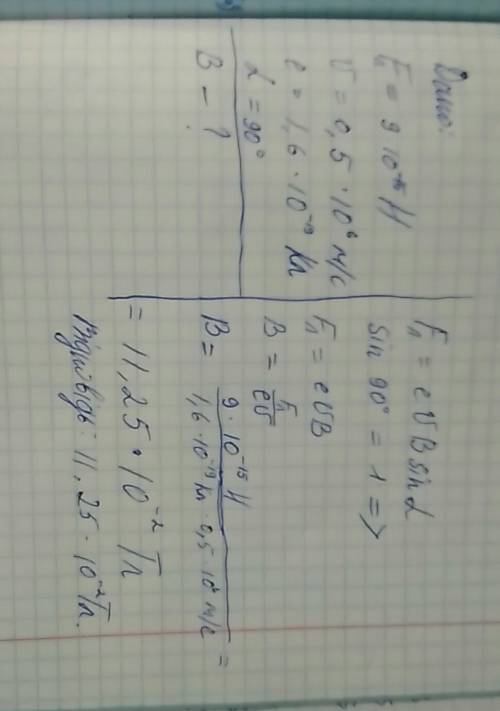 Дано:
Fл = 9·10⁻¹⁵ Н
v = 0,5·10⁶ м/с
e = 1,6·10⁻¹⁹ Кл
α = 90°
B – ?
Fл = evBsinα
sin 90° = 1 =>
Fл = evB
B = Fл/ev
B = 9·10⁻¹⁵ Н / 1,6·10⁻¹⁹ Кл · 0,5·10⁶ м/с =
= 11,25·10⁻² Тл
Відповідь: 11,25·10⁻² Тл.